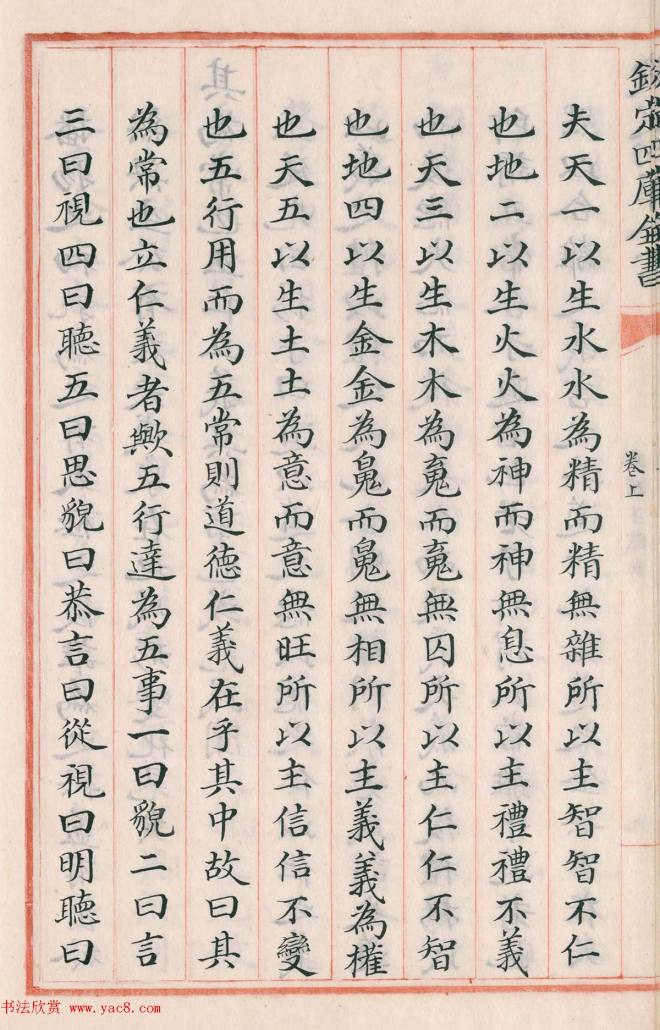 欽定四庫全書
卷上
夫天一以生水水為精而精無雜所以主智智不仁
也地二以生火火為神而神無息所以主禮禮不義
也天三以生木木為䰟而䰟無囚所以主仁仁不智
也地四以生金金為魄而魄無相所以主義義為權
也天五以生土土為意而意無旺所以主信信不變
也五行用而為五常則道德仁義在乎其中故曰其
為常也立仁義者歟五行達為五事一曰貌二曰言
三曰視四曰聽五曰思貌曰恭言曰從視曰明聽曰
书法欣赏 www.yac8.com